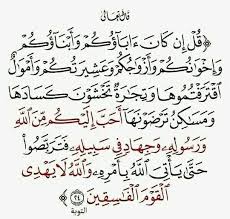 قال تعالى
﴿ قُلْ إِن كَانَ ءَابَآؤُكُمْ وَأَبْنَآؤُكُمْ
وَإِخْوَٰنُكُمْ وَأَزْوَٰجُكُمْ وَعَشِيرَتُكُمْ وَأَمْوَٰلٌ
ٱقْتَرَفْتُمُوهَا وَتِجَٰرَةٌ تَخْشَوْنَ كَسَادَهَا
وَمَسَٰكِنُ تَرْضَوْنَهَآ أَحَبَّ إِلَيْكُم مِّنَ ٱللَّهِ
وَرَسُولِهِۦ وَجِهَادٍ فِى سَبِيلِهِۦ فَتَرَبَّصُوا۟
حَتَّىٰ يَأْتِىَ ٱللَّهُ بِأَمْرِهِۦ وَٱللَّهُ لَا يَهْدِى
ٱلْقَوْمَ ٱلْفَٰسِقِينَ ﴿٢٤﴾ التوبة